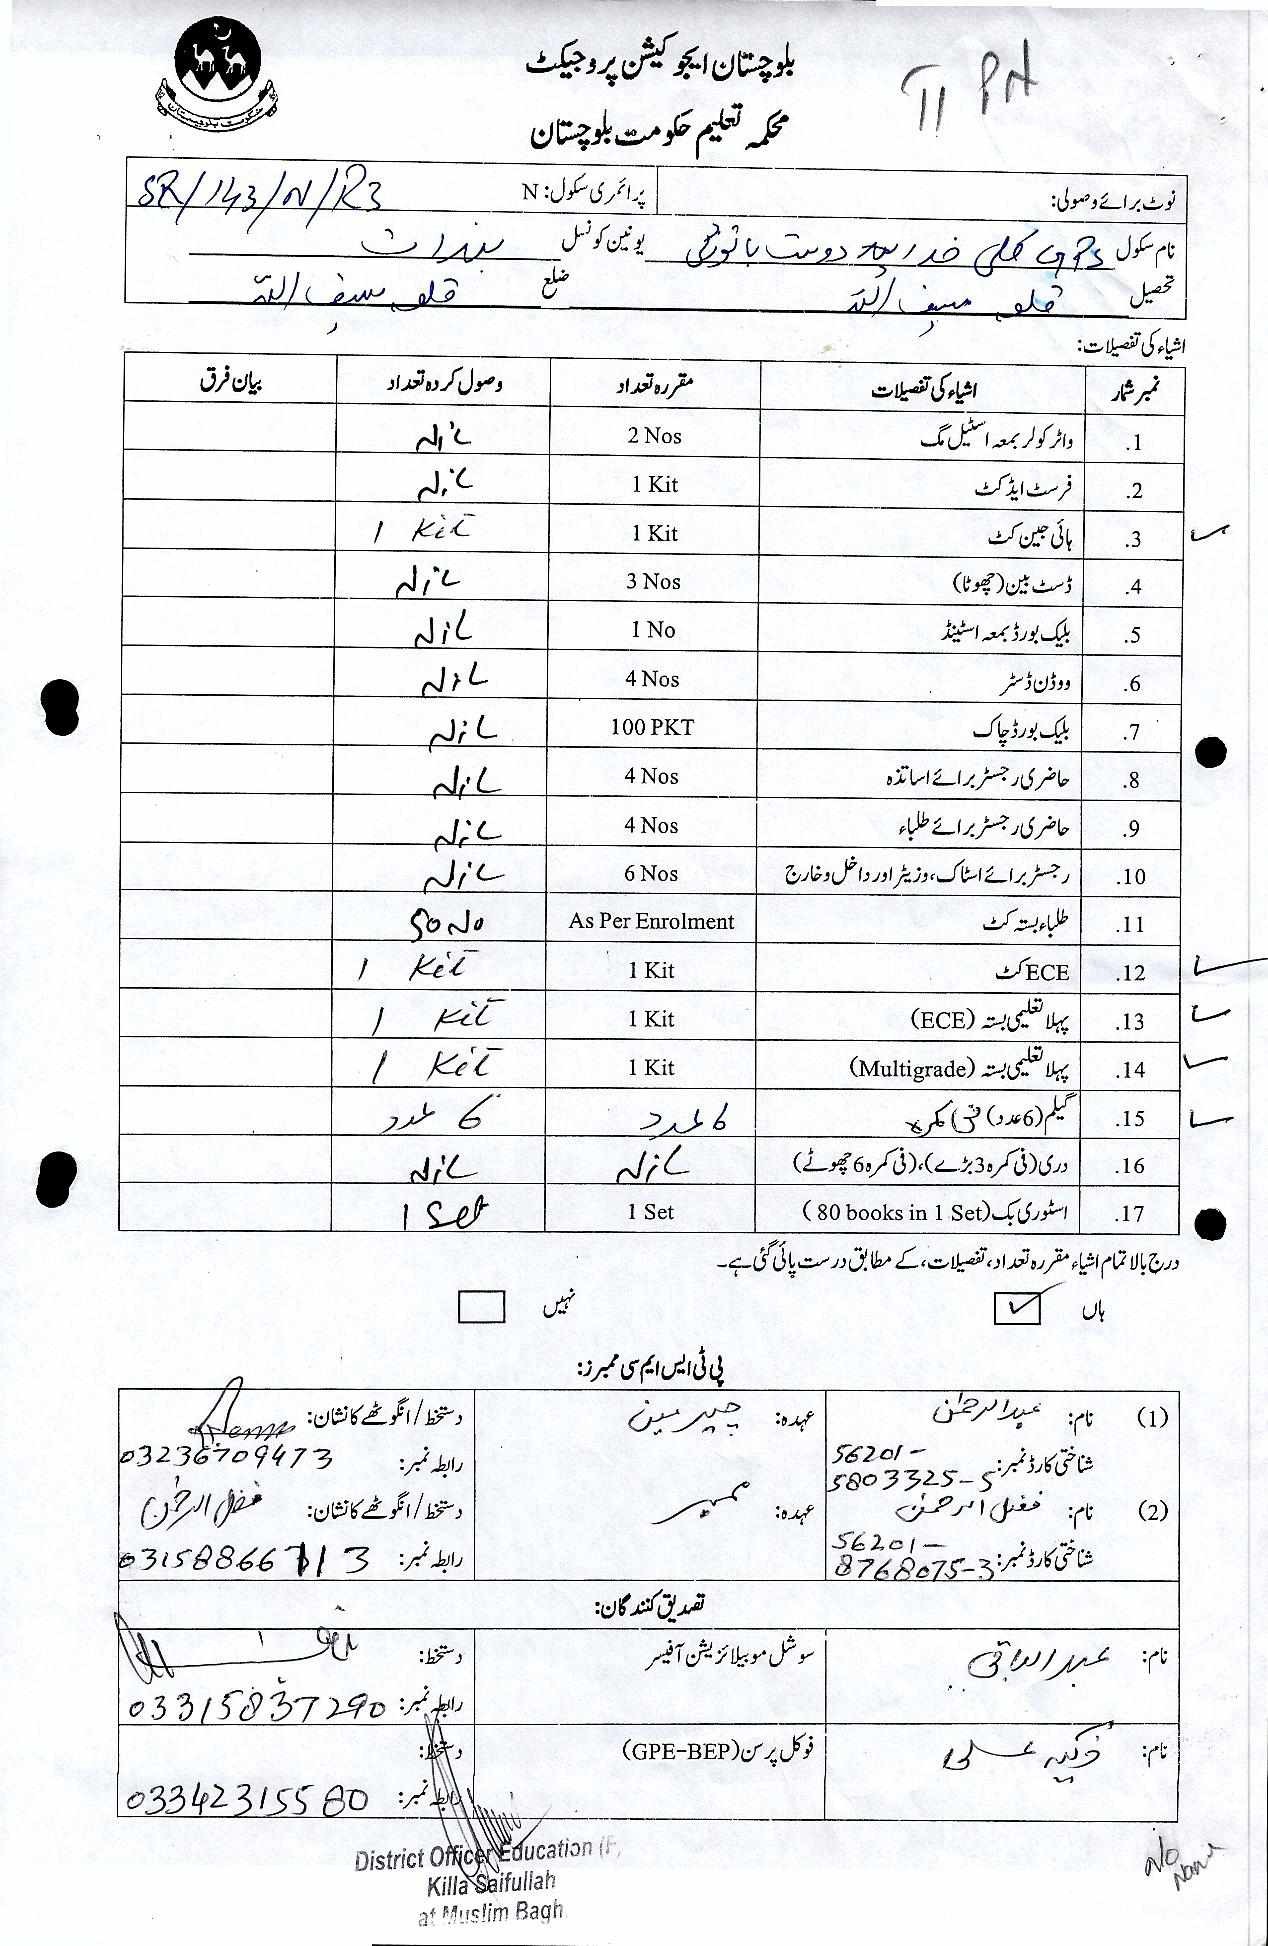 بلوچستان ایجوکیشن پروجیکٹ
محکمہ تعلیم حکومت بلوچستان
نوٹ برائے وصولی: پرائمری سکول: N SR/143/N/R3
نام سکول GPS کلی خدائے دوست باتوزئی یونین کونسل
تحصیل قلعہ سیف اللہ ضلع قلعہ سیف اللہ
اشیاء کی تفصیلات:
نمبر شمار اشیاء کی تفصیلات مقررہ تعداد وصول کردہ تعداد بیان فرق
1. واٹر کولر بمعہ اسٹیل مگ 2 Nos Nil
2. فرسٹ ایڈ کٹ 1 Kit Nil
3. ہائی جین کٹ 1 Kit 1 Kit
4. ڈسٹ بین (چھوٹا) 3 Nos Nil
5. بلیک بورڈ بمعہ اسٹینڈ 1 No Nil
6. ووڈن ڈسٹر 4 Nos Nil
7. بلیک بورڈ چاک 100 PKT Nil
8. حاضری رجسٹر برائے اساتذہ 4 Nos Nil
9. حاضری رجسٹر برائے طلباء 4 Nos Nil
10. رجسٹر برائے اسٹاک، وزیٹر اور داخل و خارج 6 Nos Nil
11. طلباء بستہ کٹ As Per Enrolment 50 No
12. ECE کٹ 1 Kit 1 Kit
13. پہلا تعلیمی بستہ (ECE) 1 Kit 1 Kit
14. پہلا تعلیمی بستہ (Multigrade) 1 Kit 1 Kit
15. گیلم (6 عدد) فی کمرہ 6 عدد 6 عدد
16. دری (فی کمرہ 3 بڑے)، (فی کمرہ 6 چھوٹے) Nil Nil
17. اسٹوری بک (80 books in 1 Set) 1 Set 1 Set
درج بالا تمام اشیاء مقررہ تعداد، تفصیلات، کے مطابق درست پائی گئی ہے۔
ہاں نہیں
پی ٹی ایس ایم سی ممبرز:
(1) نام: عبدالرحمٰن عہدہ: چیرمین دستخط/انگوٹھے کا نشان:
شناختی کارڈ نمبر: 56201-5803325-5 رابطہ نمبر: 03236709473
(2) نام: فضل الرحمٰن عہدہ: ممبر دستخط/انگوٹھے کا نشان: فضل الرحمٰن
شناختی کارڈ نمبر: 56201-8768075-3 رابطہ نمبر: 03158866713
تصدیق کنندگان:
نام: عبدالباقی سوشل موبیلائزیشن آفیسر دستخط:
رابطہ نمبر: 03315837290
نام: ذکیہ علی فوکل پرسن (GPE-BEP) دستخط:
رابطہ نمبر: 03342315580
District Officer Education (F
Killa Saifullah
at Muslim Bagh